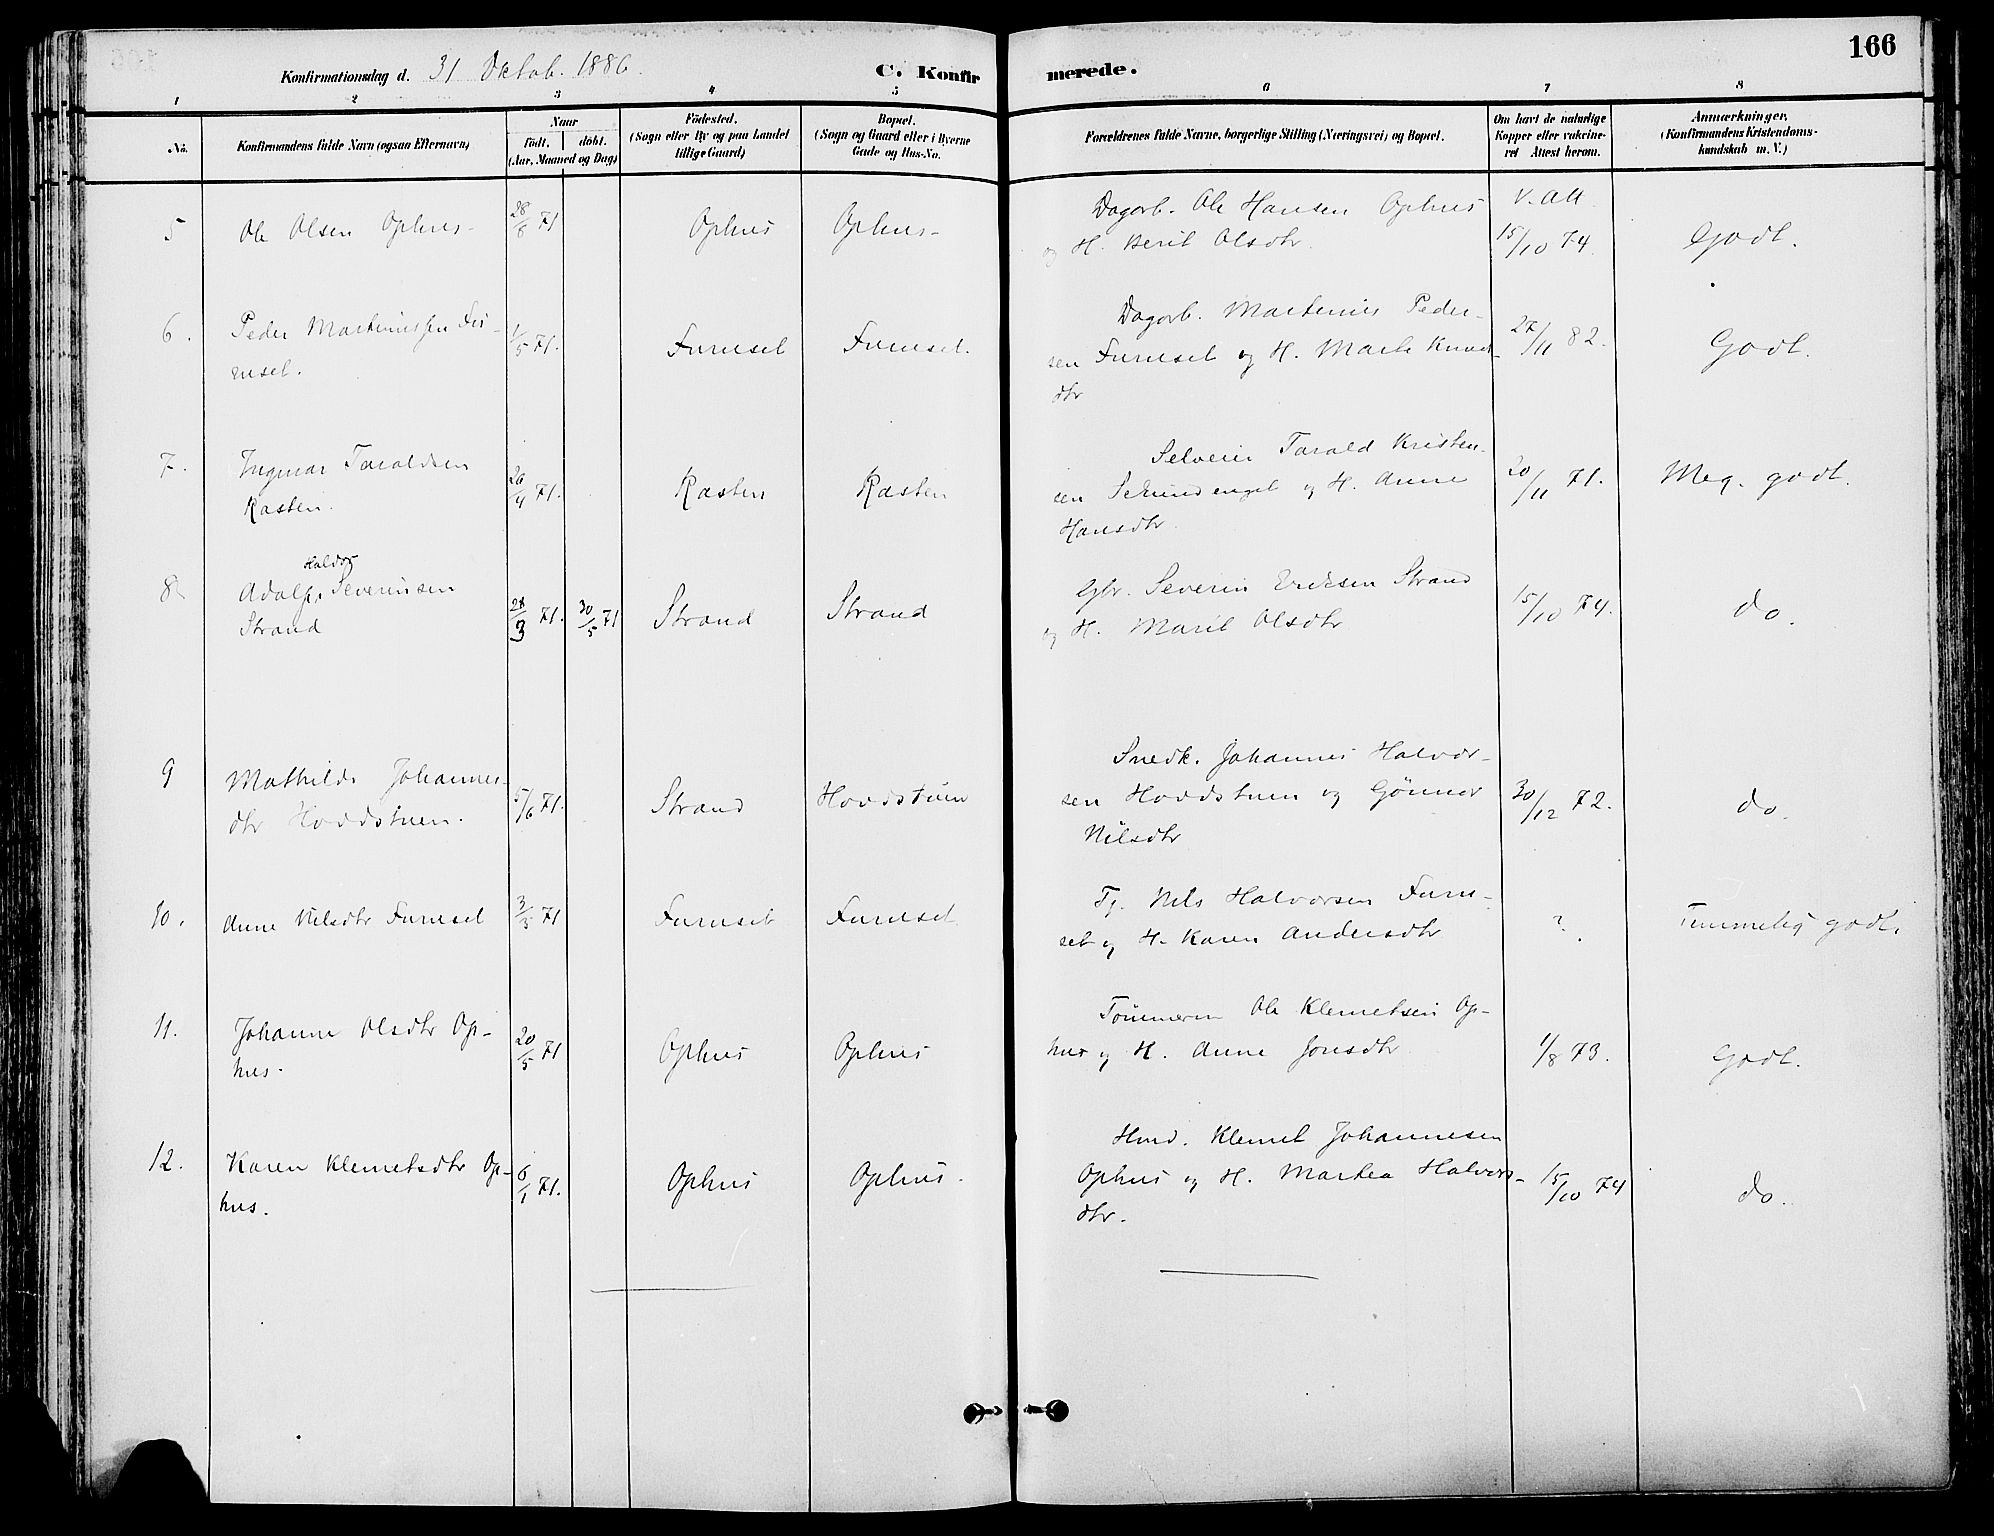 166
Konfirmationsdag d. 31 Oktob. 1886. C. Konfirmerede.
1 2 3 4 5 6 7 8
No. Konfirmandens fulde Navn (ogsaa Efternavn) Naar Födt. döbt. (Aar, Maaned og Dag) Födested. (Sogn eller By og paa Landet tillige Gaard) Bopæl. (Sogn og Gaard eller i Byerne Gade og Hus-No. Forældrenes fulde Navne, borgerlige Stilling (Næringsvei) og Bopæl. Om havt de naturlige Kopper eller vakcineret Attest herom. Anmærkninger, (Konfirmandens Kristendomskundskab m. V.)
5 Ole Olsen Ophus 28/8 71 Ophus Ophus Dagarb. Ole Hansen Ophus V. Att.
og H. Berit Olsdtr. 15/10 74 Godt.
6. Peder Martinussen Fur- 1/5 71. Furuset Furuset. Dagarb. Martinus Peder-
uset. sen Furuset og H. Marte Knud- 27/11 82. Godt.
dtr
7. Ingmar Taraldsen Selveier Tarald Kristen-
Rasten. 26/4 71. Rasten Rasten sen og H. Anne 20/11 71. Meg. godt.
Hansdtr.
Haldor
8 Adolf Severinsen 28/3 71. 30/5 71 Strand Strand Gbr. Severin Eriksen Strand 15/10 74. do.
Strand og H. Marit Olsdtr
9 Mathilde Johannes- Snedk. Johannes Halvor-
dtr Hovdstuen. 5/6 71. Strand Hovdstuen sen Hovdstuen og Gönner 30/12 72. do.
Nilsdtr
10. Anne Nilsdtr Furuset 3/5 71 Furuset Furuset Tj. Nils Halvorsen Furu-
set og H. Karen Andersdtr ? Temmelig godt.
11. Johanne Olsdtr Op- 20/5 71 Ophus Ophus Tömmerm Ole Klemetsen Op-
hus. hus og H. Anne Jonsdtr 1/8 73. Godt.
12. Karen Klemetsdtr Op- 6/1 71. Ophus Ophus. Hmd. Klemet Johannesen
hus. Ophus og H. Martea Halvors- 15/10 74 do.
dtr.